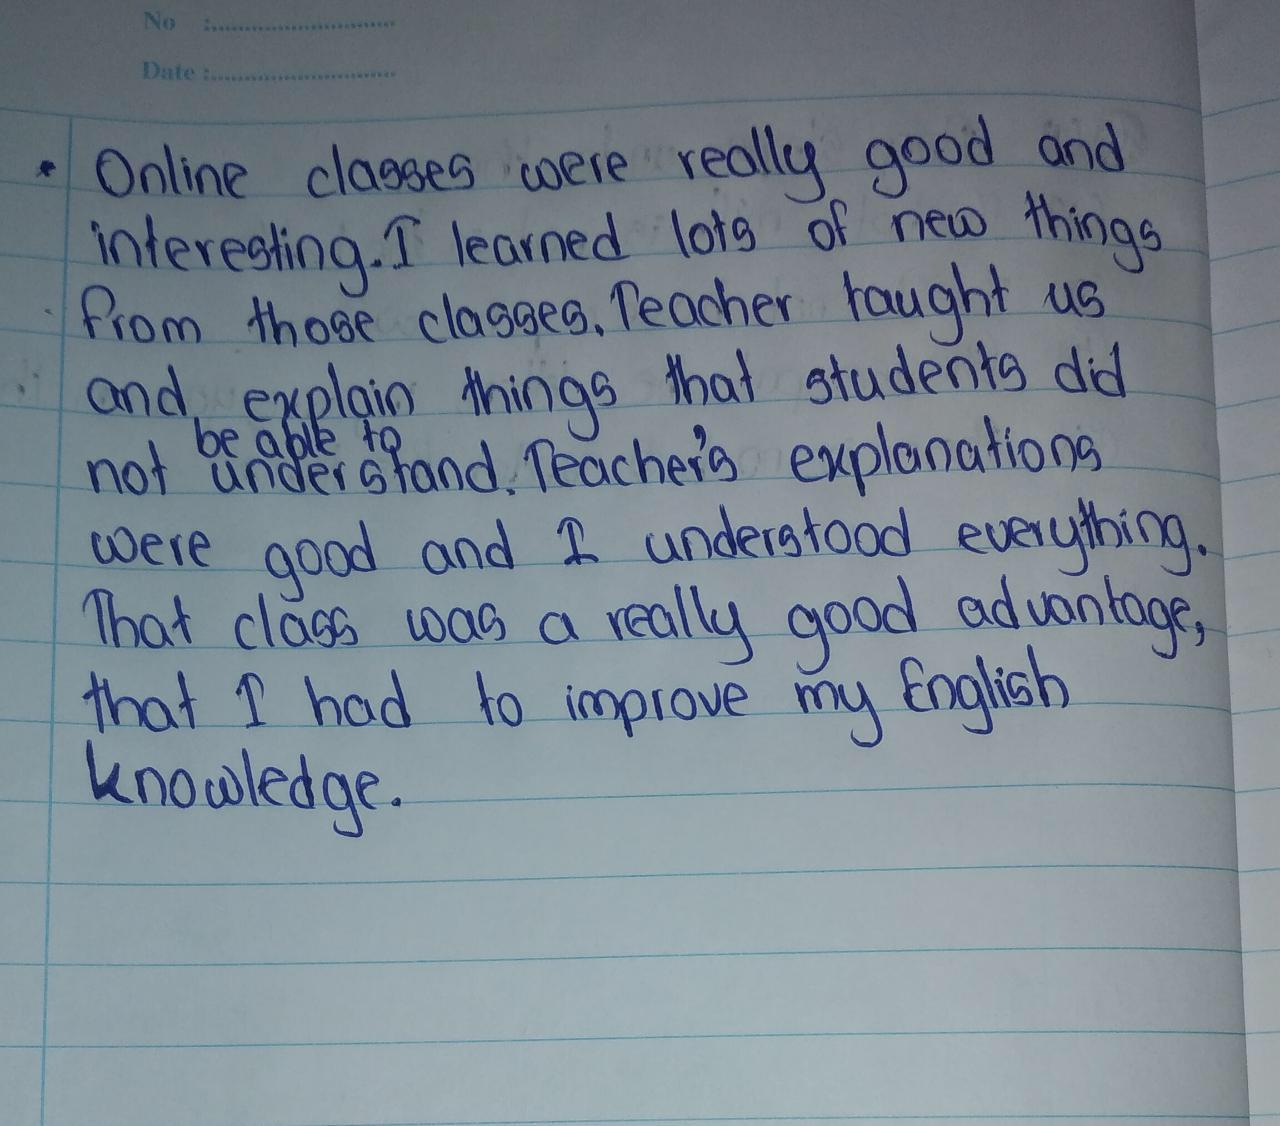 No :................................
Date :................................
• Online classes were really good and
interesting. I learned lots of new things
from those classes. Teacher taught us
and explain things that students did
be able to
not understand. Teacher's explanations
were good and I understood everything.
That class was a really good advantage,
that I had to improve my English
knowledge.